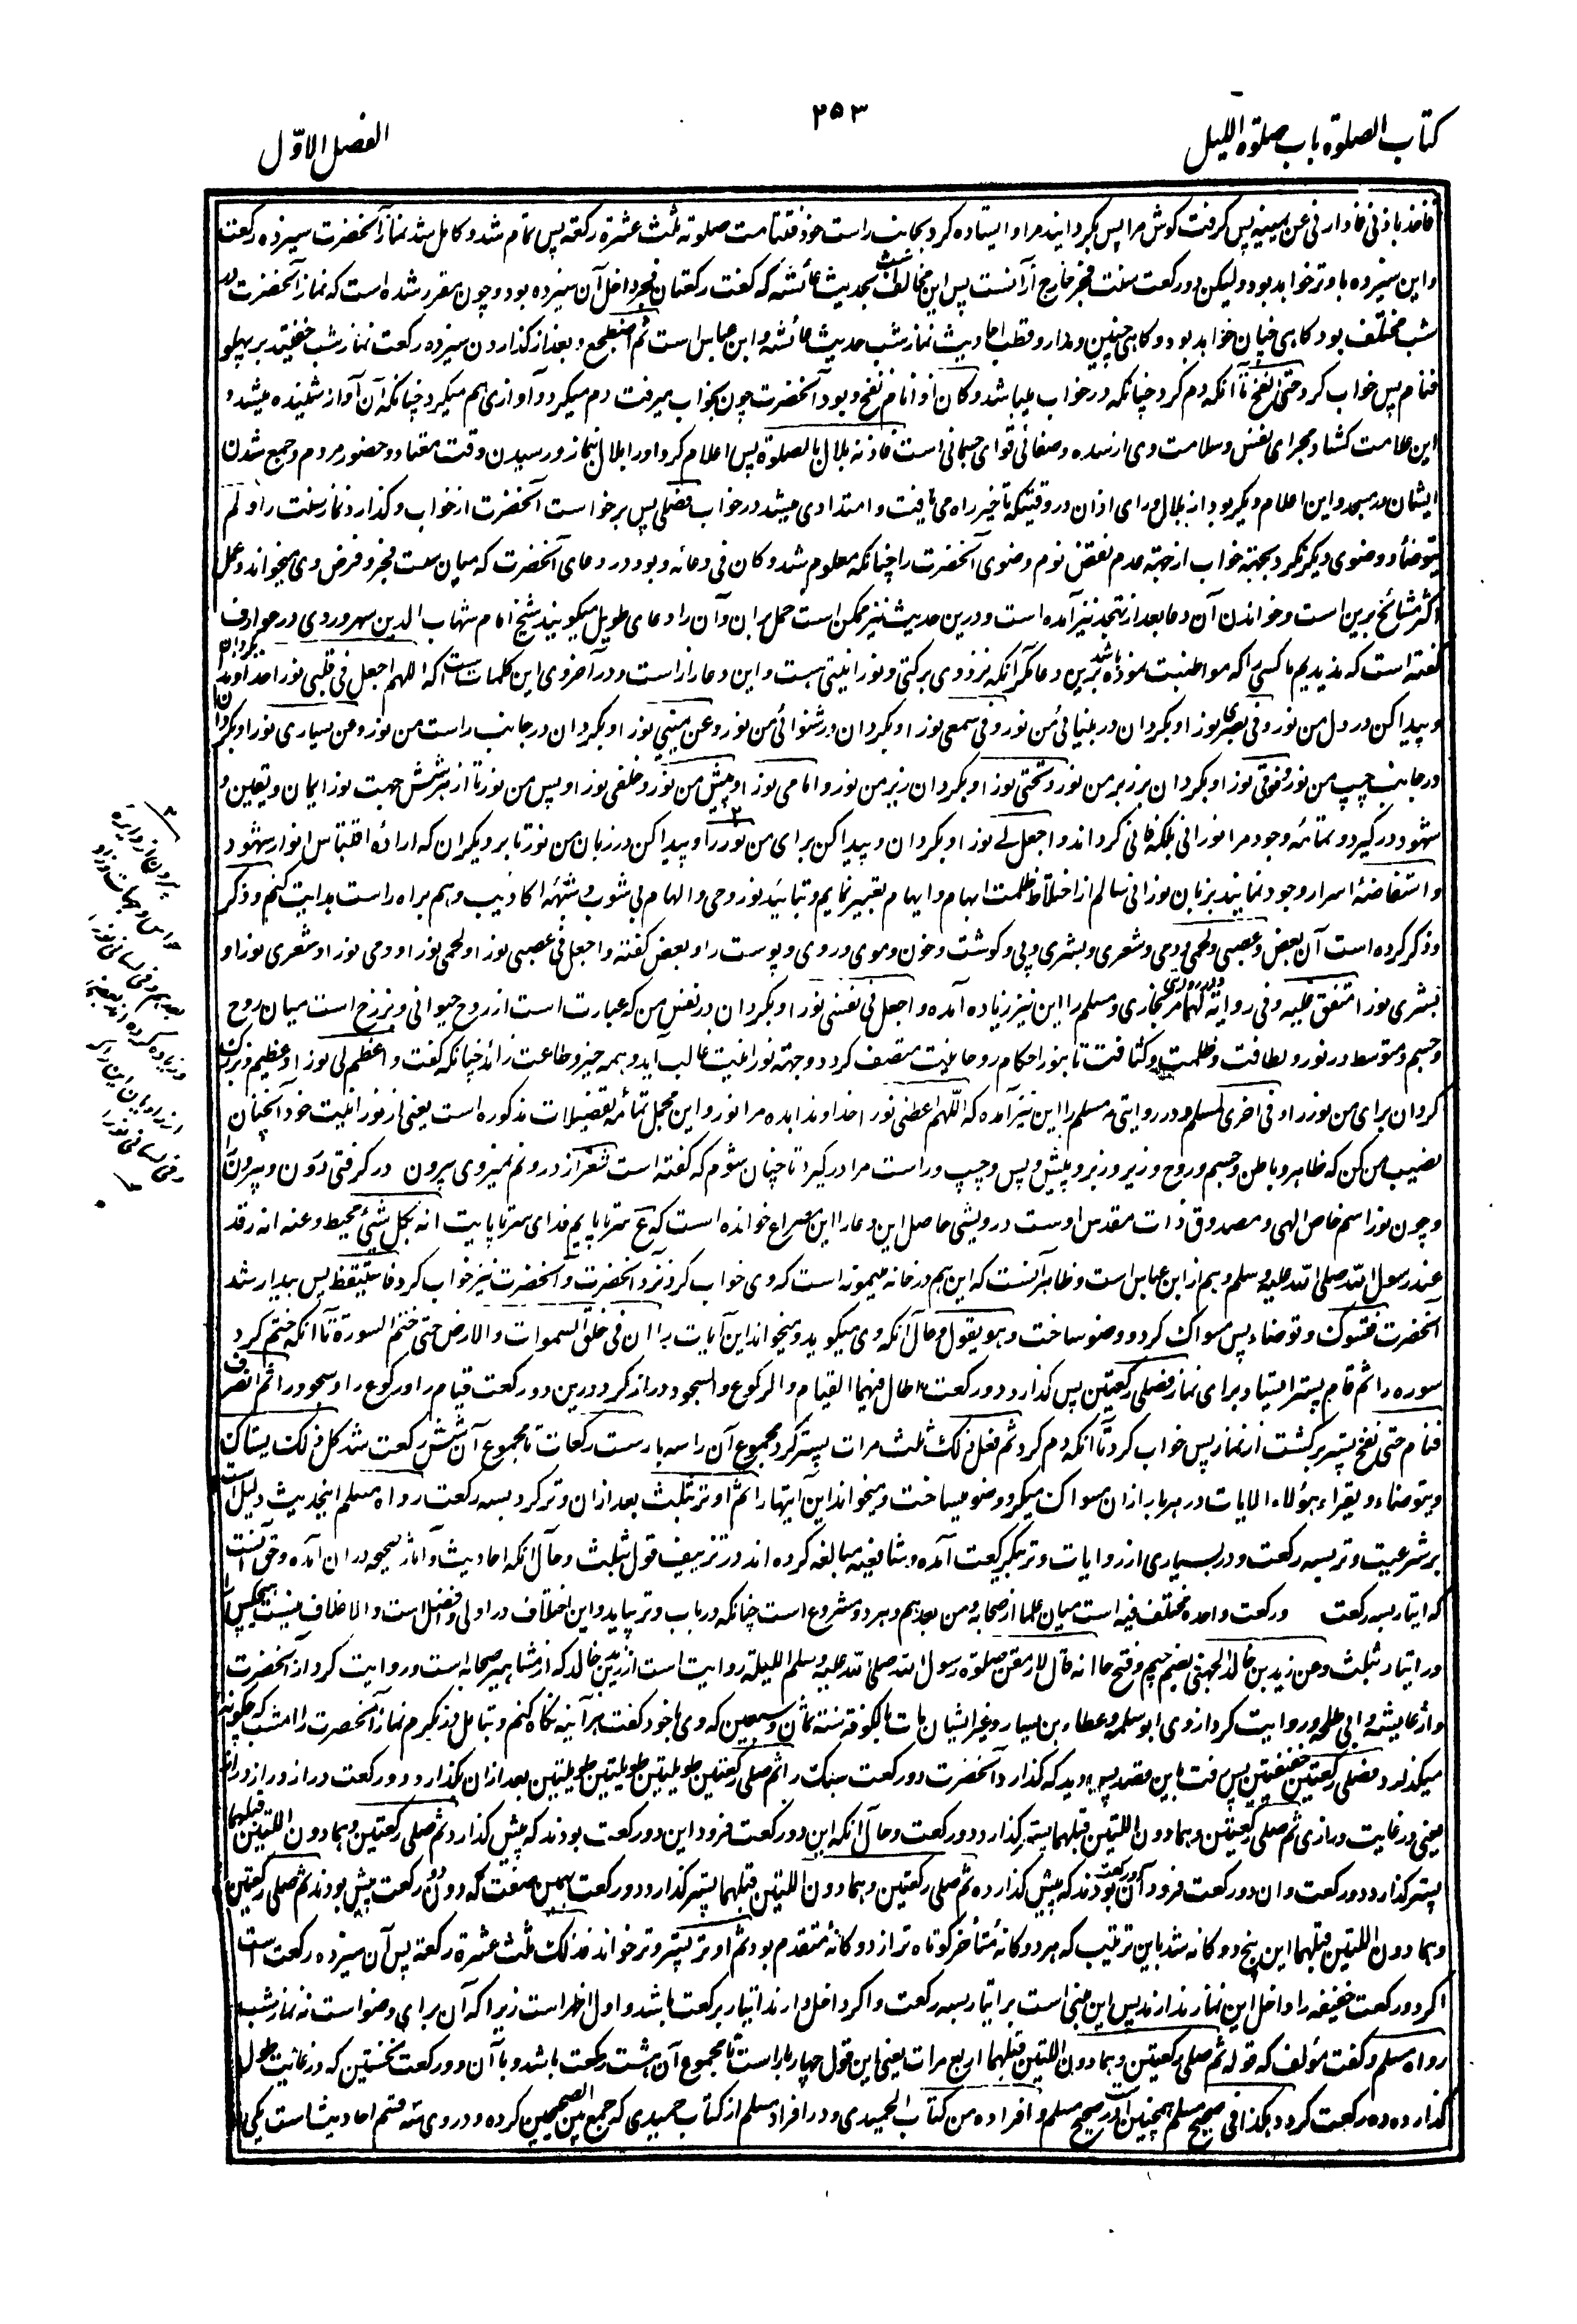 کتاب الصلوة باب صلوة اللیل
۲۵۳
الفصل الاوّل
فاخذ باذنی فادارنی عن یمینه پس گرفت گوش مرا پس بگردانید مرا و ایستاده کرد بجانب راست خود فتتامت صلوته ثلث عشرة رکعة پس تمام شد و کامل شد نماز آنحضرت سیزده رکعت
و این سیزده با وتر خواهد بود و لیکن دو رکعت سنت فجر خارج ازآنست پس این مخالف است بحدیث عائشه که گفت رکعتان فجر داخل آن سیزده بود و چون مقرر شده است که نماز آنحضرت در
شب مختلف بود گاهی چنان خواهد بود و گاهی چنین و مدار و قطب احادیث نماز شب حدیث عائشه و ابن عباس است ثم اضطجع و بعد از گذاردن سیزده رکعت نماز شب خفتید بر پهلو
فنام پس خواب کرد حتی نفخ تا آنکه دم کرد چنانکه در خواب میباشد و کان اذا نام نفخ و بود آنحضرت چون بخواب میرفت دم میکرد و آوازی هم میکرد چنانکه آن آواز شنیده میشد و
این علامت کشاد مجرای نفس و سلامت وی از سده و صفائی قوای جسمانی است فاذنه بلال بالصلوة پس اعلام کرد اورا بلال بنماز و رسیدن وقت معتاد و حضور مردم و جمع شدن
ایشان در مسجد و این اعلام دیگر بود از بلال ورای اذان در وقتیکه تاخیر راه می یافت و امتدادی میشد در خواب فصلی پس برخواست آنحضرت از خواب و گذارد نماز سنت را و لم
یتوضأ و وضوی دیگر نکرد بجهة خواب از جهة عدم نقض نوم وضوی آنحضرت را چنانکه معلوم شد و کان فی دعائه و بود در دعای آنحضرت که میان سنت فجر و فرض وی میخواند و عمل
اکثر مشائخ برین است و خواندن آن دعا بعد از تهجد نیز آمده است و درین حدیث نیز ممکن است حمل بران و آن را دعای طویل میگویند شیخ امام شهاب الدین سهروردی در عوارف
گفته است که ندیدیم ما کسی را که مواظبت نموده باشد برین دعا مگر آنکه نزد وی برکتی و نورانیتی هست و این دعا دراز است و در آخر وی این کلمات است که اللهم اجعل فی قلبی نورا خداوندا بگردان
و پیدا کن در دل من نور و فی بصری نورا و بگردان در بینائی من نور و فی سمعی نورا و بگردان در شنوائی من نور و عن یمینی نورا و بگردان در جانب راست من نور و عن یساری نورا و بگردان
در جانب چپ من نور و فوقی نورا و بگردان بر زبر من نور و تحتی نورا و بگردان زیر من نور و امامی نورا و پیش من نور و خلفی نورا و پس من نور تا از هر شش جهت نور ایمان و یقین و
شهود در گیرد و بتمامه وجود مرا نورانی بلکه فانی گرداند و اجعل لی نورا و بگردان و پیدا کن برای من نور را و پیدا کن در زبان من نور تا بر دیگران که اراده اقتباس انوار شهود
و استفاضهٔ اسرار وجود نمایند بزبان نورانی سالم از اختلاط ظلمت ابهام و ایهام تعبیر نمایم و بتائید نور وحی و الهام بی شوب و شبهٔه اکاذیب وهم براه راست هدایت کنم و ذکر
و ذکر کرده است آن بعض و عصبی و لحمی و دمی و شعری و بشری و پی و گوشت و خون و موی و روی و پوست را و بعض گفته و اجعل فی عصبی نورا و لحمی نورا و دمی نورا و شعری نورا و
بشری نورا متفق علیه و فی روایة لهما و در روایتی مر بخاری و مسلم را این نیز زیاده آمده و اجعل فی نفسی نورا و بگردان در نفس من که عبارت است از روح حیوانی و برزخ است میان روح
و جسم و متوسط در نور و لطافت و ظلمت و کثافت تا بنور احکام روحانیت متصف گردد و جهة نورانیت غالب آید و همه خیر و طاعت زائد چنانکه گفت و اعظم لی نورا و عظیم و بزرگ
گردان برای من نور را و فی اخری لمسلم و در روایتی مر مسلم را این نیز آمده که اللهم اعطنی نورا خداوندا بده مرا نور و این مجمل تمامه تفصیلات مذکوره است یعنی از نورانیت خود آنچنان
نصیب من کن که ظاهر و باطن و جسم و روح و زیر و زبر و پیش و پس و چپ و راست مرا در گیرد تا چنان شوم که گفته است شعر از درونم نمیروی بیرون در گرفتی درون و بیرون را
و چون نور اسم خاص الهی و مصدوق ذات مقدس اوست درویشی حاصل این دعا را این مصراع خوانده است که ع سر تا پایم فدای سر تا پایت انه بکل شیٔ محیط و عنه انه رقد
عند رسول الله صلی الله علیه وسلم و هم از ابن عباس است و ظاهر آنست که این هم در خانه میمونه است که وی خواب کرد نزد آنحضرت و آنحضرت نیز خواب کرد فاستیقظ پس بیدار شد
آنحضرت فتسوک و توضاء پس مسواک کرد و وضو ساخت و هو یقول و حال آنکه وی میگوید و میخواند این آیات را ان فی خلق السموات و الارض حتی ختم السورة تا آنکه ختم کرد
سوره را ثم قام پستر ایستاد برای نماز فصلی رکعتین پس گذارد دو رکعت اطال فیهما القیام و الرکوع و السجود دراز کرد درین دو رکعت قیام را و رکوع را و سجود را ثم انصرف
فنام حتی نفخ پستر برگشت از نماز پس خواب کرد تا آنکه دم کرد ثم فعل ذلک ثلث مرات پستر کرد مجموع آن را سه بار ست رکعات تا مجموع آن شش رکعت شد کل ذلک یستاک
و یتوضاء و یقراء هؤلاء الایات در هر بار ازان مسواک میکرد و وضو میساخت و میخواند این آیتها را ثم اوتر بثلث بعد ازان وتر کرد بسه رکعت رواه مسلم اینحدیث دلیل است
بر شرعیت وتر بسه رکعت و در بسیاری از روایات وتر بیکرکعت آمده و شافعیه مبالغه کرده اند در تزییف قول بثلث و حال آنکه احادیث و آثار صحیحه دران آمده و حق آنست
که ایتار بسه رکعت و رکعت واحده مختلف فیه است میان علما از صحابه و من بعدهم و هر دو مشروع است چنانکه در باب وتر بیاید و این اختلاف در اولی و افضل است و الا خلاف نیست هیچکس را
در ایتار بثلث و عن زید بن خالد الجهنی بضم جیم و فتح ها انه قال لارمقن صلوة رسول الله صلی الله علیه وسلم اللیلة روایت است از زید بن خالد که از مشاهیر صحابه است و روایت کرد از آنحضرت
و از عایشه و ابی طلحه و روایت کرد از وی ابو سلمه و عطاء بن یسار و غیر ایشان مات بالکوفة سنة ثمان و سبعین که وی با خود گفت هر آینه نگاه کنم و بتامل بنگرم نماز آنحضرت را امشب که چگونه
میگذارد فصلی رکعتین خفیفتین پس رفت باین قصد پس دید که گذارد آنحضرت دو رکعت سبک را ثم صلی رکعتین طویلتین طویلتین طویلتین بعد ازان بگذارد دو رکعت دراز دراز دراز
یعنی در غایت درازی ثم صلی رکعتین و هما دون اللتین قبلهما پستر گذارد دو رکعت و حال آنکه این دو رکعت فرود این دو رکعت بودند که پیش گذارد ثم صلی رکعتین و هما دون اللتین قبلهما
پستر گذارد دو رکعت و ان دو رکعت فرود آن دو رکعت بودند که پیش گذارده ثم صلی رکعتین و هما دون اللتین قبلهما پستر گذارد دو رکعت بهمین صفت که دون دو رکعت پیش بودند ثم صلی رکعتین
و هما دون اللتین قبلهما این پنج دوگانه شد باین ترتیب که هر دوگانهٔ متأخر کوتاه تر از دوگانهٔ متقدم بود ثم اوتر پستر وتر خواند فذلک ثلث عشرة رکعة پس آن سیزده رکعت است
اگر دو رکعت خفیفه را داخل این نماز ندارند پس این مبنی است بر ایتار بسه رکعت و اگر داخل دارند ایتار برکعت باشد و اول اظهر است زیرا که آن برای وضو است نه نماز شب
رواه مسلم و گفت مؤلف که قوله ثم صلی رکعتین و هما دون اللتین قبلهما اربع مرات یعنی این قول چهار بار است تا مجموع آن هشت رکعت باشد و با آن دو رکعت نخستین که در غایت طول
گذارده ده رکعت گردد هکذا فی صحیح مسلم همچنین است در صحیح مسلم و افراده من کتاب الحمیدی و در افراد مسلم از کتاب حمیدی که جمع بین الصحیحین کرده و در وی سه قسم احادیث است یکی